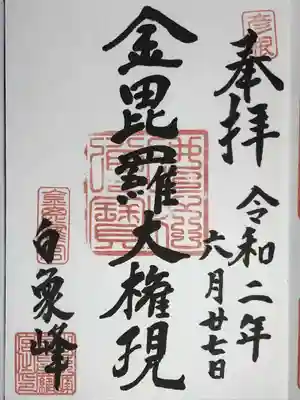 奉拝
令和二年
六月廿七日
金毘羅大権現
白象峰